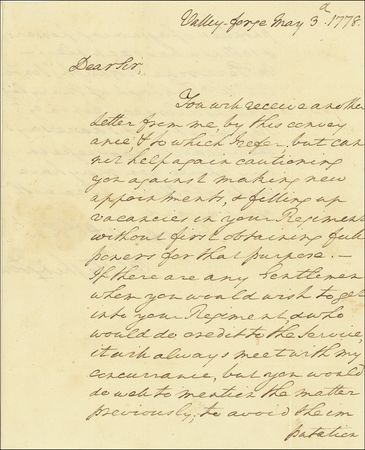 Valley-forge May 3d. 1778.
Dear Sir,
You will receive another
Letter from me, by this convey
ance, & to which I refer, but can
not help again cautioning
you against making new
appointments, & filling up
vacancies in your Regiment
without first obtaining full
powers for that purpose. —
If there are any Gentlemen
whom you would wish to get
into your Regiment, & who
would do credit to the Service,
it will always meet with my
concurrance, but you would
do well to mention the matter
previously, to avoid the im
putation